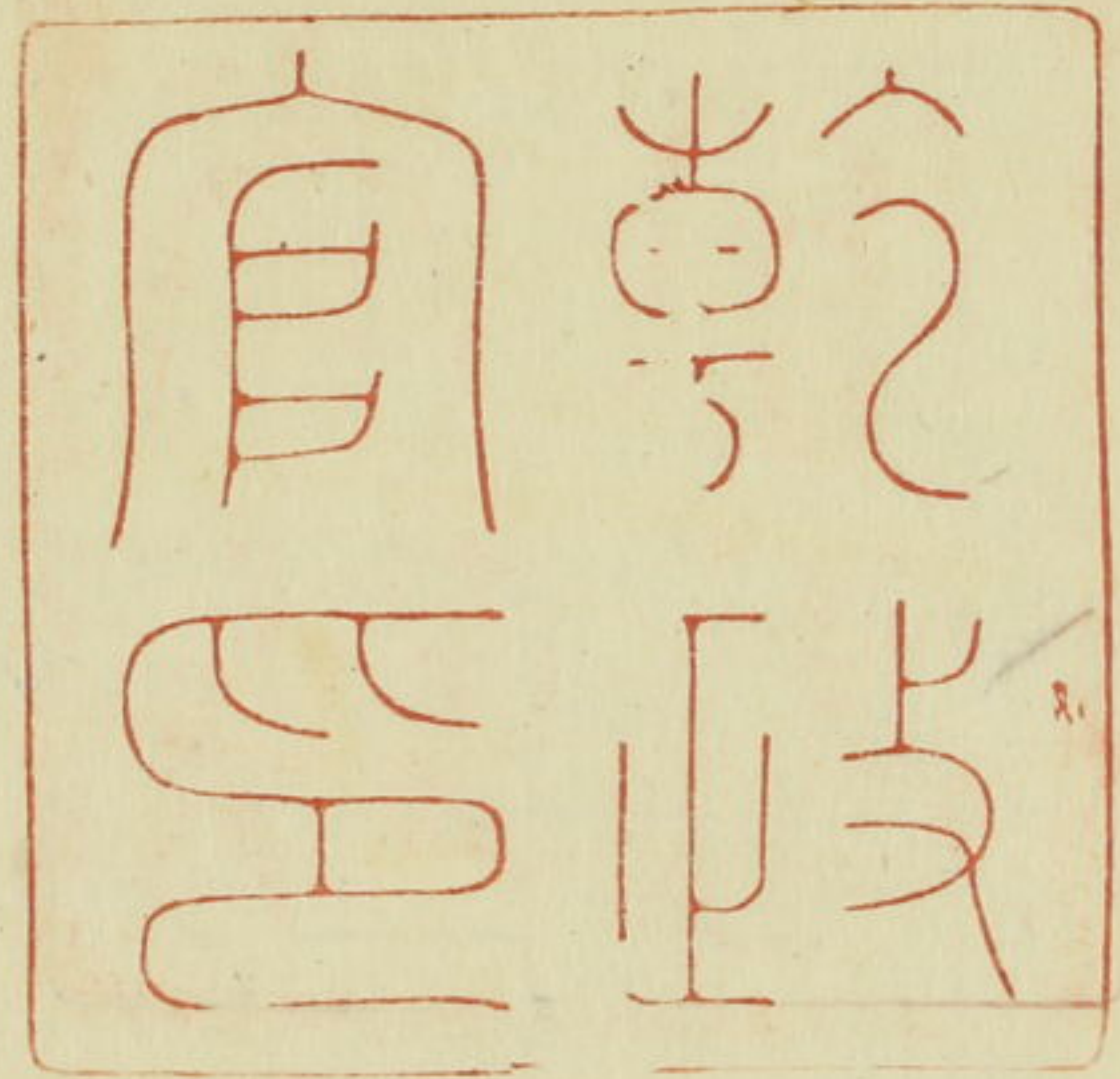 乾政
官印